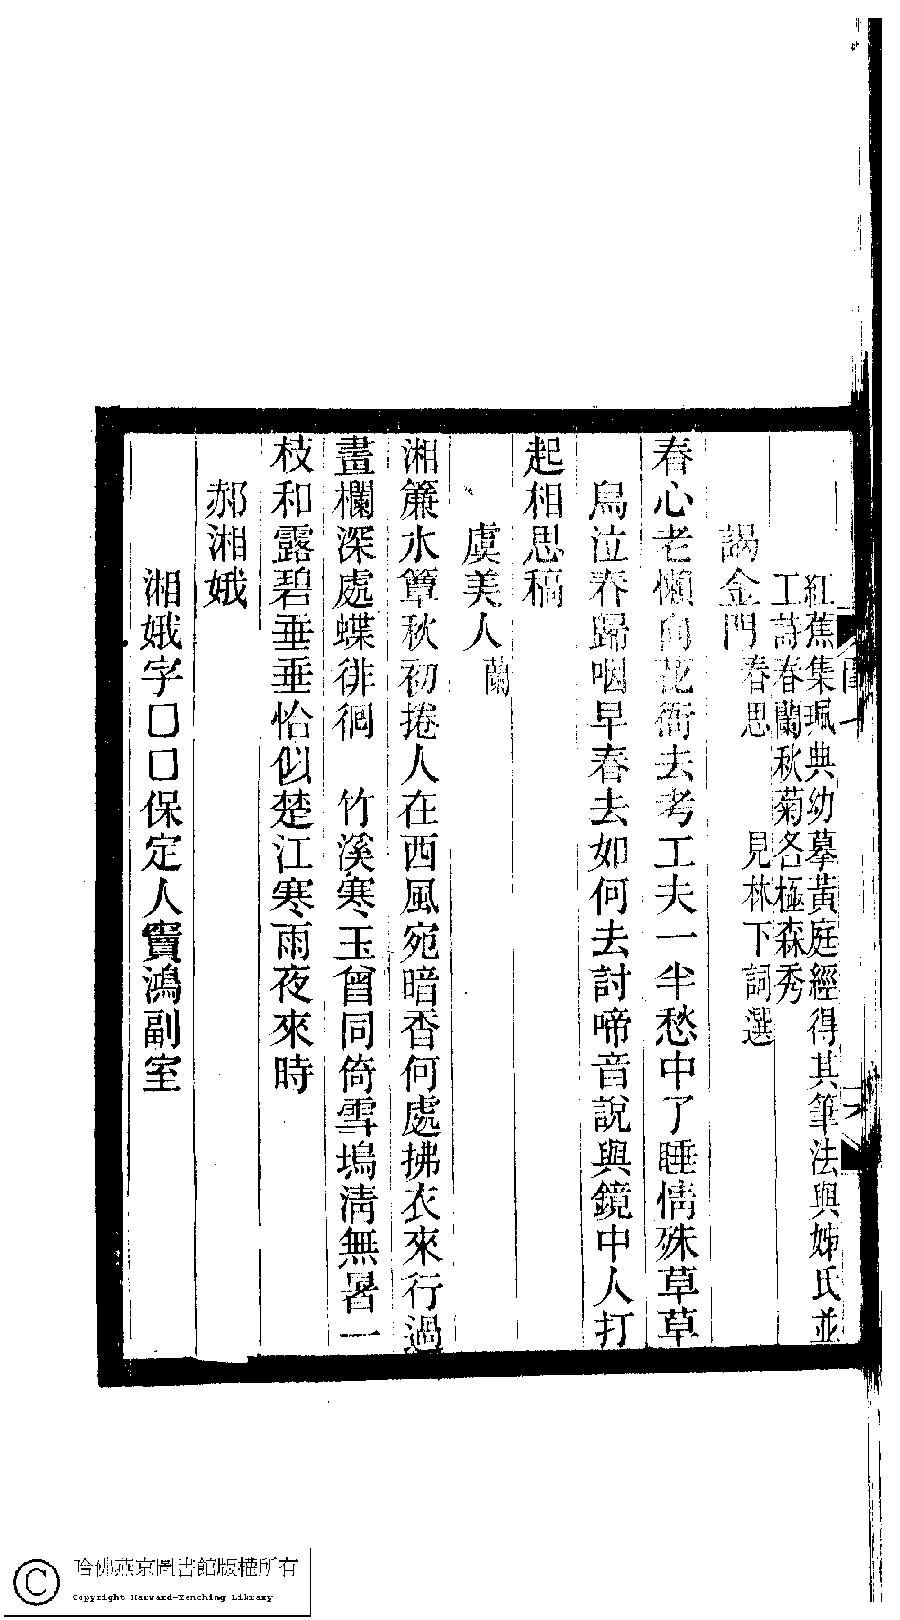 紅蕉集珮典幼摹黃庭經得其筆法與姊氏並
工詩春蘭秋菊各極森秀
謁金門春思　見林下詞選
春心老懶向花衙去考工夫一半愁中了睡情殊草草
烏泣春歸咽早春去如何去討啼音說與鏡中人打
起相思稿
虞美人蘭
湘簾水簟秋初捲人在西風宛暗香何處拂衣來行過
畫欄深處蝶徘徊　竹溪寒玉曾同倚雪塢清無暑一
枝和露碧垂垂恰似楚江寒雨夜來時
郝湘娥
湘娥字囗囗保定人竇鴻副室
哈佛燕京圖書館版權所有
Copyright Harvard-Yenching Library